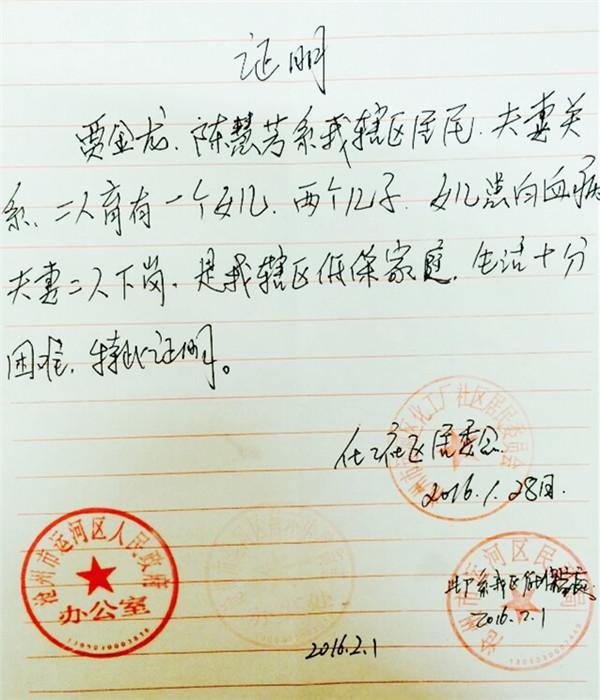 证明
贾金龙、陈慧芳系我辖区居民，夫妻关
系，二人育有一个女儿，两个儿子，女儿患白血病
夫妻二人下岗，是我辖区低保家庭，生活十分
困难，特此证明。
化工社区居委会
2016.1.28日.
化工厂社区居民委员会
沧州市运河区人民政府
办公室
沧州市运河区民
此户系我区低保家庭
2016.2.1
2016.2.1